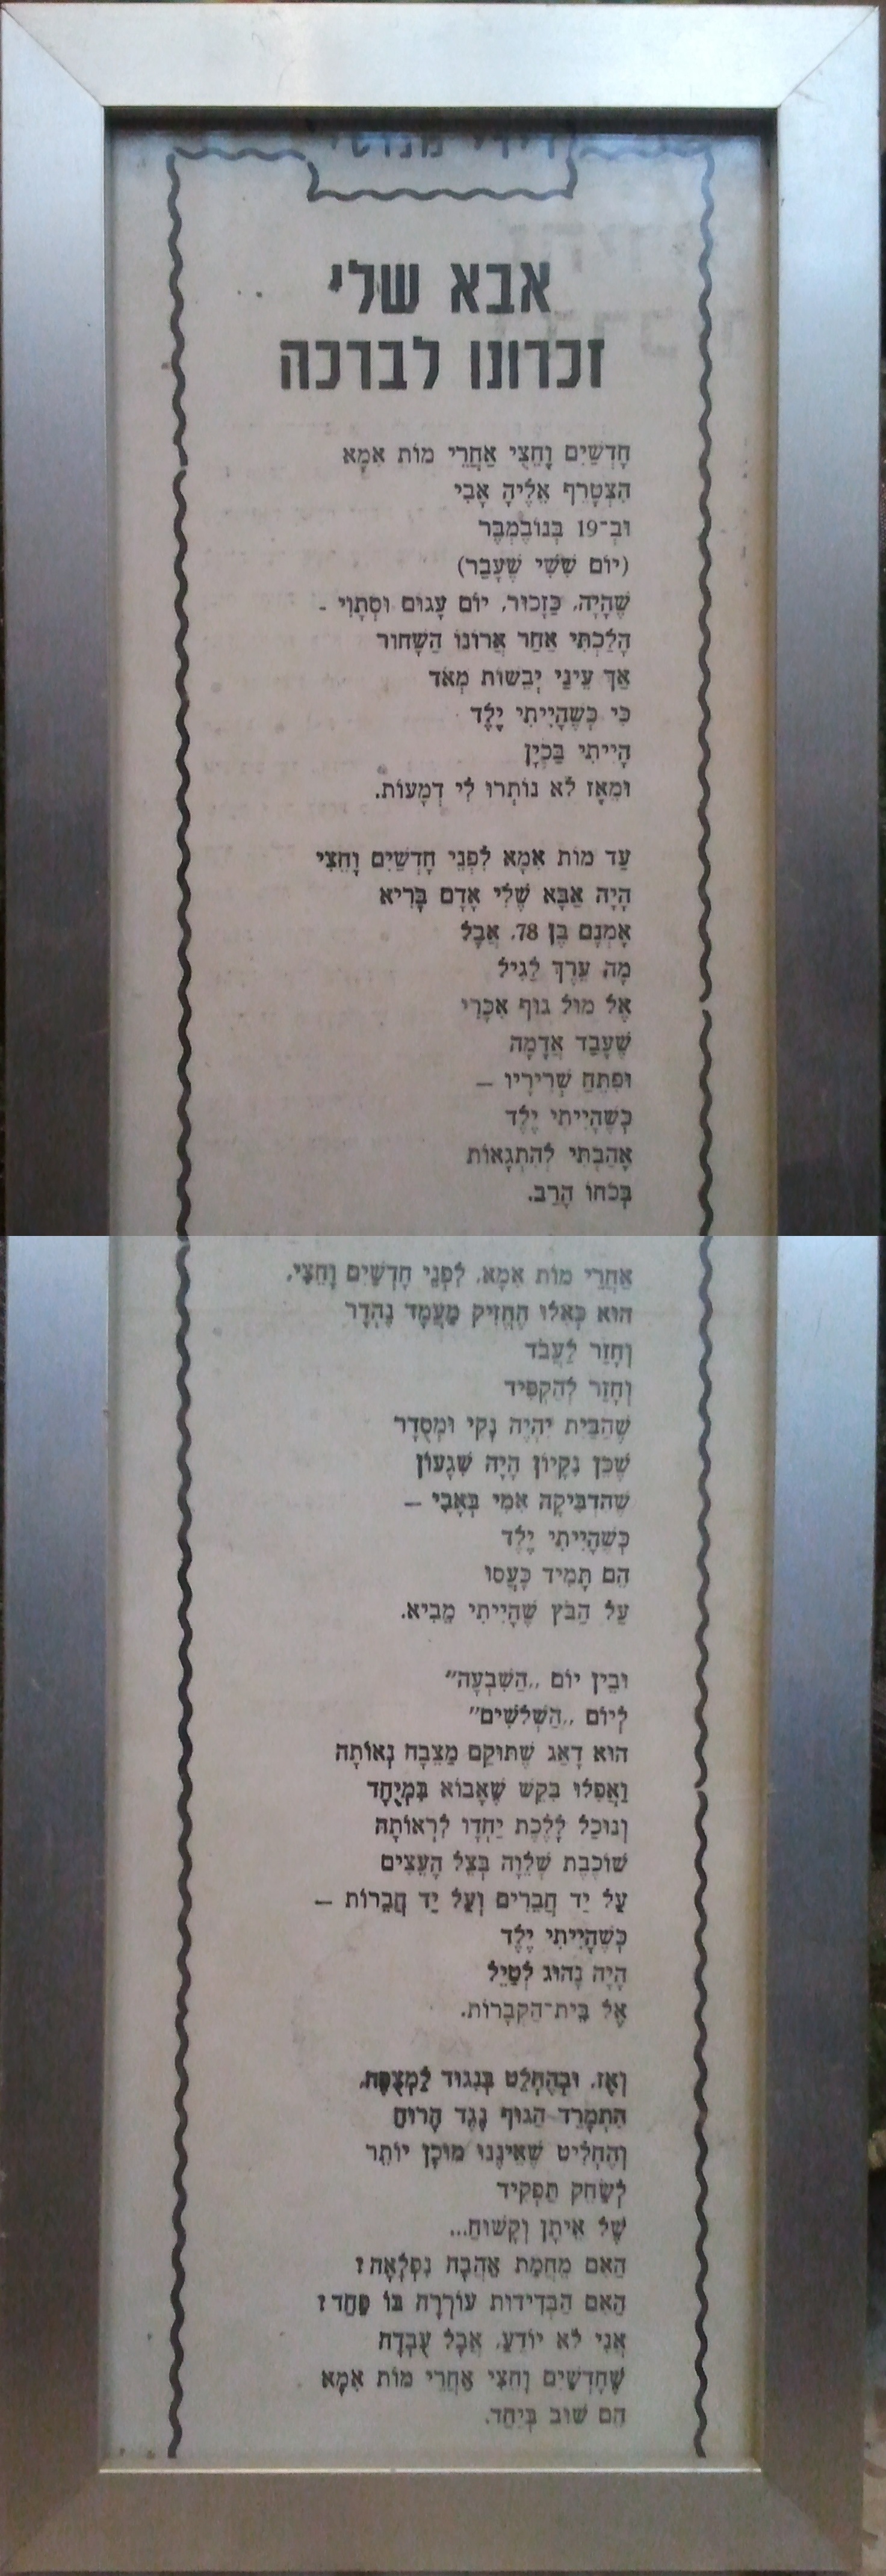 דידי מנוסי
אבא שלי
זכרונו לברכה
חָדְשַׁיִם וָחֵצִי אַחֲרֵי מוֹת אִמָּא
הִצְטָרֵף אֵלֶיהָ אָבִי
וּבְ־19 בְּנוֹבֶמְבֶּר
(יוֹם שִׁשִּׁי שֶׁעָבַר)
שֶׁהָיָה, כַּזָּכוּר, יוֹם עָגוּם וּסְתָוִי -
הָלַכְתִּי אַחַר אֲרוֹנוֹ הַשָּׁחוֹר
אַךְ עֵינַי יְבֵשׁוֹת מְאֹד
כִּי כְּשֶׁהָיִיתִי יֶלֶד
הָיִיתִי בַּכְיָן
וּמֵאָז לֹא נוֹתְרוּ לִי דְמָעוֹת.
עַד מוֹת אִמָּא לִפְנֵי חָדְשַׁיִם וָחֵצִי
הָיָה אַבָּא שֶׁלִּי אָדָם בָּרִיא
אָמְנָם בֶּן 78, אֲבָל
מָה עֵרֶךְ לַגִּיל
אֶל מוּל גּוּף אִכָּרִי
שֶׁעָבַד אֲדָמָה
וּפִתֵּחַ שְׁרִירָיו —
כְּשֶׁהָיִיתִי יֶלֶד
אָהַבְתִּי לְהִתְגָּאוֹת
בְּכֹחוֹ הָרַב.
אַחֲרֵי מוֹת אִמָּא, לִפְנֵי חָדְשַׁיִם וָחֵצִי,
הוּא כְּאִלּוּ הֶחֱזִיק מַעֲמָד נֶהְדָּר
וְחָזַר לַעֲבֹד
וְחָזַר לְהַקְפִּיד
שֶׁהַבַּיִת יִהְיֶה נָקִי וּמְסֻדָּר
שֶׁכֵּן נִקָּיוֹן הָיָה שִׁגָּעוֹן
שֶׁהִדְבִּיקָה אִמִּי בְּאָבִי —
כְּשֶׁהָיִיתִי יֶלֶד
הֵם תָּמִיד כָּעֲסוּ
עַל הַבֹּץ שֶׁהָיִיתִי מֵבִיא.
וּבֵין יוֹם ,,הַשִּׁבְעָה"
לְיוֹם ,,הַשְּׁלֹשִׁים"
הוּא דָאַג שֶׁתּוּקַם מַצֵּבָה נְאוֹתָה
וַאֲפִלּוּ בִּקֵּשׁ שֶׁאָבוֹא בִּמְיֻחָד
וְנוּכַל לָלֶכֶת יַחְדָּו לִרְאוֹתָהּ
שׁוֹכֶבֶת שְׁלֵוָה בְּצֵל הָעֵצִים
עַל יַד חֲבֵרִים וְעַל יַד חֲבֵרוֹת —
כְּשֶׁהָיִיתִי יֶלֶד
הָיָה נָהוּג לְטַיֵּל
אֶל בֵּית־הַקְּבָרוֹת.
וְאָז, וּבְהֶחְלֵט בְּנִגּוּד לַמְצֻפֶּה,
הִתְמָרֵד הַגּוּף נֶגֶד הָרוּחַ
וְהֶחְלִיט שֶׁאֵינֶנּוּ מוּכָן יוֹתֵר
לְשַׂחֵק תַּפְקִיד
שֶׁל אֵיתָן וְקָשׁוּחַ...
הַאִם מֵחֲמַת אַהֲבָה נִפְלָאָה?
הַאִם הַבְּדִידוּת עוֹרְרָה בּוֹ פַּחַד?
אֲנִי לֹא יוֹדֵעַ, אֲבָל עֻבְדָּה
שֶׁחָדְשַׁיִם וָחֵצִי אַחֲרֵי מוֹת אִמָּא
הֵם שׁוּב בְּיַחַד.